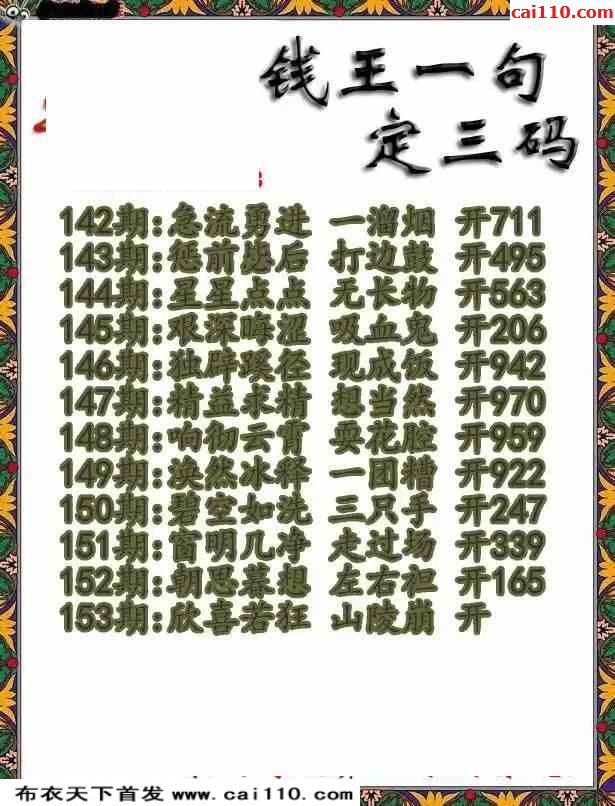 cai110.com
钱王一句
定三码
142期:急流勇进 一溜烟 开711
143期:惩前毖后 打边鼓 开495
144期:星星点点 无长物 开563
145期:艰深晦涩 吸血鬼 开206
146期:独辟蹊径 现成饭 开942
147期:精益求精 想当然 开970
148期:响彻云霄 耍花腔 开959
149期:涣然冰释 一团糟 开922
150期:碧空如洗 三只手 开247
151期:窗明几净 走过场 开339
152期:朝思暮想 左右袒 开165
153期:欣喜若狂 山陵崩 开
布衣天下首发 www.cai110.com